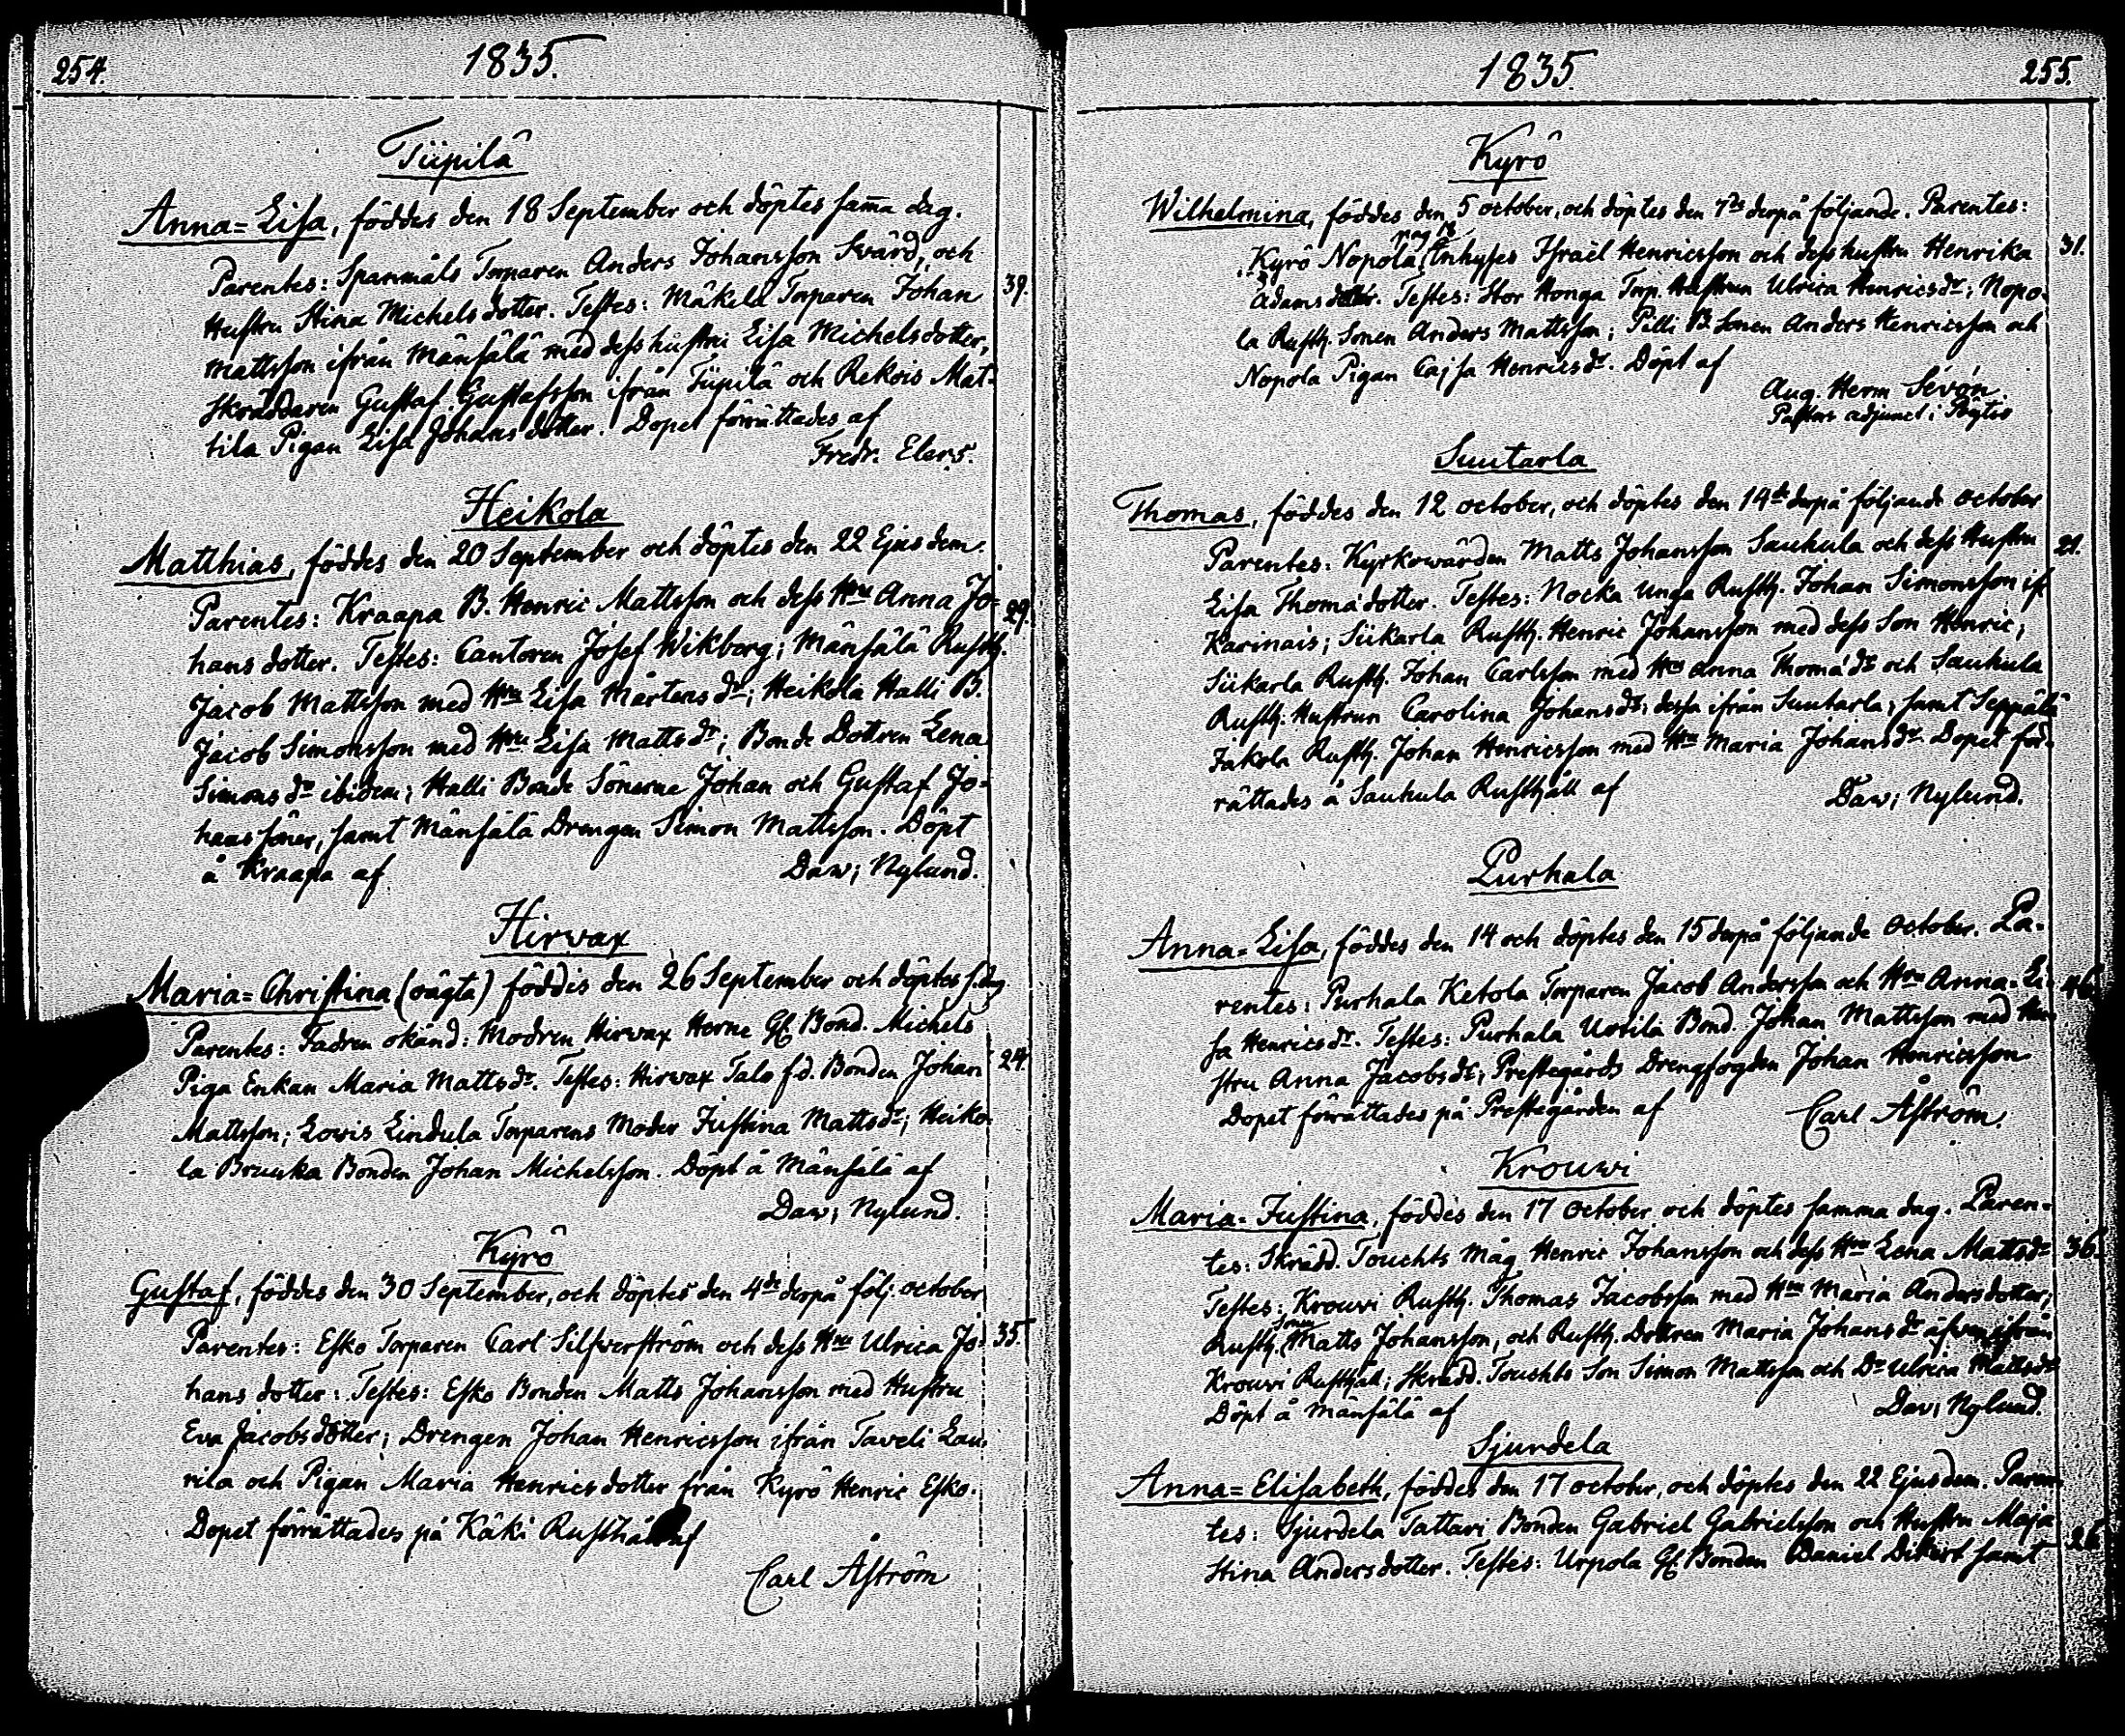 254.
1835.
Tüpilä
Anna=Lisa, föddes den 18 September och döptes sam̄a dag.
Parentes: Spanmåls Torparen Anders Johansson Svärd, och
Hustru Stina Michelsdotter. Testes: Mäkelä Torparen Johan
39.
Mattsson ifrån Mänsälä med dess hustru Lisa Michelsdotter,
Skräddaren Gustaf Gustafsson ifrån Tüpilä och Rekois Mat-
tila Pigan Lisa Johansdotter. Dopet förrättades af
Fredr. Elers.
Heikola
Matthias, föddes den 20 September och döptes den 22 Ejusdem.
Parentes: Kraapa B. Henric Mattsson och dess Hru Anna Jo-
29.
hansdotter. Testes: Cantoren Josef Wikberg; Mänsälä Rusth.
Jacob Mattsson med Hru Lisa Mårtensdr; Heikola Halli B.
Jacob Simonsson med Hru Lisa Mattsdr; Bonde Dottren Lena
Simonsdr ibidem; Halli Bonde Sönerne Johan och Gustaf Jo-
hanssöner, samt Mänsälä Drengen Simon Mattsson. Döpt
å Kraapa af
Daw; Nylund.
Hirvax
Maria=Christina (oägta) föddes den 26 September och döptes s. dag.
Parentes: Fadren okänd: Modren Hirvax Herne Gl. Bond. Michels
Piga Enkan Maria Mattsdr. Testes: Hirvax Talo f.d. Bonden Johan
24.
Mattsson; Lowis Lindula Torparens Moder Justina Mattsdr; Heiko-
la Bruuka Bonden Johan Michelsson. Döpt å Mänsälä af
Daw; Nylund.
Kyrö
Gustaf, föddes den 30 September, och döptes den 4de derpå följ. october
Parentes: Esko Torparen Carl Silfverström och dess Hru Ulrica Jo-
35.
hansdotter: Testes: Esko Bonden Matts Johansson med Hustru
Eva Jacobsdotter; Drengen Johan Henricsson ifrån Taveli Lau-
rila och Pigan Maria Henricsdotter från Kyrö Henric Esko.
Dopet förrättades på Käki Rusthåll af
Carl Åström
1835.
255.
Kyrö
Wilhelmina, föddes den 5 october, och döptes den 7de derpå följande. Parentes:
Kyrö Nopola Inhyses Israël Henricsson och dess hustru Henrika
31.
Adamsdotter. Testes: Stor Honga Torp. Hustrun Ulrica Henricsdr; Nopo-
la Rusth. Sonen Anders Mattsson; Pilli B. Sonen Anders Henricsson och
Nopola Pigan Cajsa Henricsdr. Döpt af
Aug. Herm Sévon.
Pastors adjunct i Pöytis
Suutarla
Thomas, föddes den 12 october, och döptes den 14de derpå följande october
Parentes: Kyrkowärden Matts Johansson Sauhula och dess Hustru
21.
Lisa Thomædotter. Testes: Nocka Unga Rusth. Johan Simonsson ifr
Karinais; Siikarla Rusth. Henric Johansson med dess Son Henric;
Siikarla Rusth. Johan Carlsson med Hru Anna Thomædr och Sauhula
Rusth. Hustrun Carolina Johansdr; dessa ifrån Suutarla; samt Seppälä
Jakola Rusth. Johan Henricsson med Hru Maria Johansdr. Dopet för-
rättades å Sauhula Rusthåll af
Daw; Nylund.
Purhala
Anna=Lisa, föddes den 14 och döptes den 15 derpå följande October. Pa-
rentes: Purhala Ketola Torparen Jacob Andersson och Hru Anna-Li-
46.
sa Henricsdr. Testes: Purhala Uotila Bond. Johan Mattsson med Hu-
stru Anna Jacobsdr; Prestegårds Drengfogden Johan Henricsson
Dopet förrättades på Prestegården af
Carl Åström.
Krouwi
Maria=Justina, föddes den 17 October och döptes samma dag. Paren-
tes: Skrädd. Touchts Måg Henric Johansson och dess Hru Lena Mattsdr
36.
Testes: Krouwi Rusth. Thomas Jacobsson med Hru Maria Andersdotter;
Rusth. Sonen Matts Johansson, och Rusth. Dottren Maria Johansdr äfven ifrån
Krouwi Rusthåll; Skrädd. Touchts Son Simon Mattsson och Dr Ulrica Mattsdr
Döpt å Mänsälä af
Dav; Nylund.
Sjurdela
Anna=Elisabeth, föddes den 17 october, och döptes den 22 Ejusdem. Paren-
tes: Sjurdela Tattari Bonden Gabriel Gabrielsson och Hustru Maja
26
Stina Andersdotter. Testes: Urpola Gl. Bonden Daniel Dikert samt